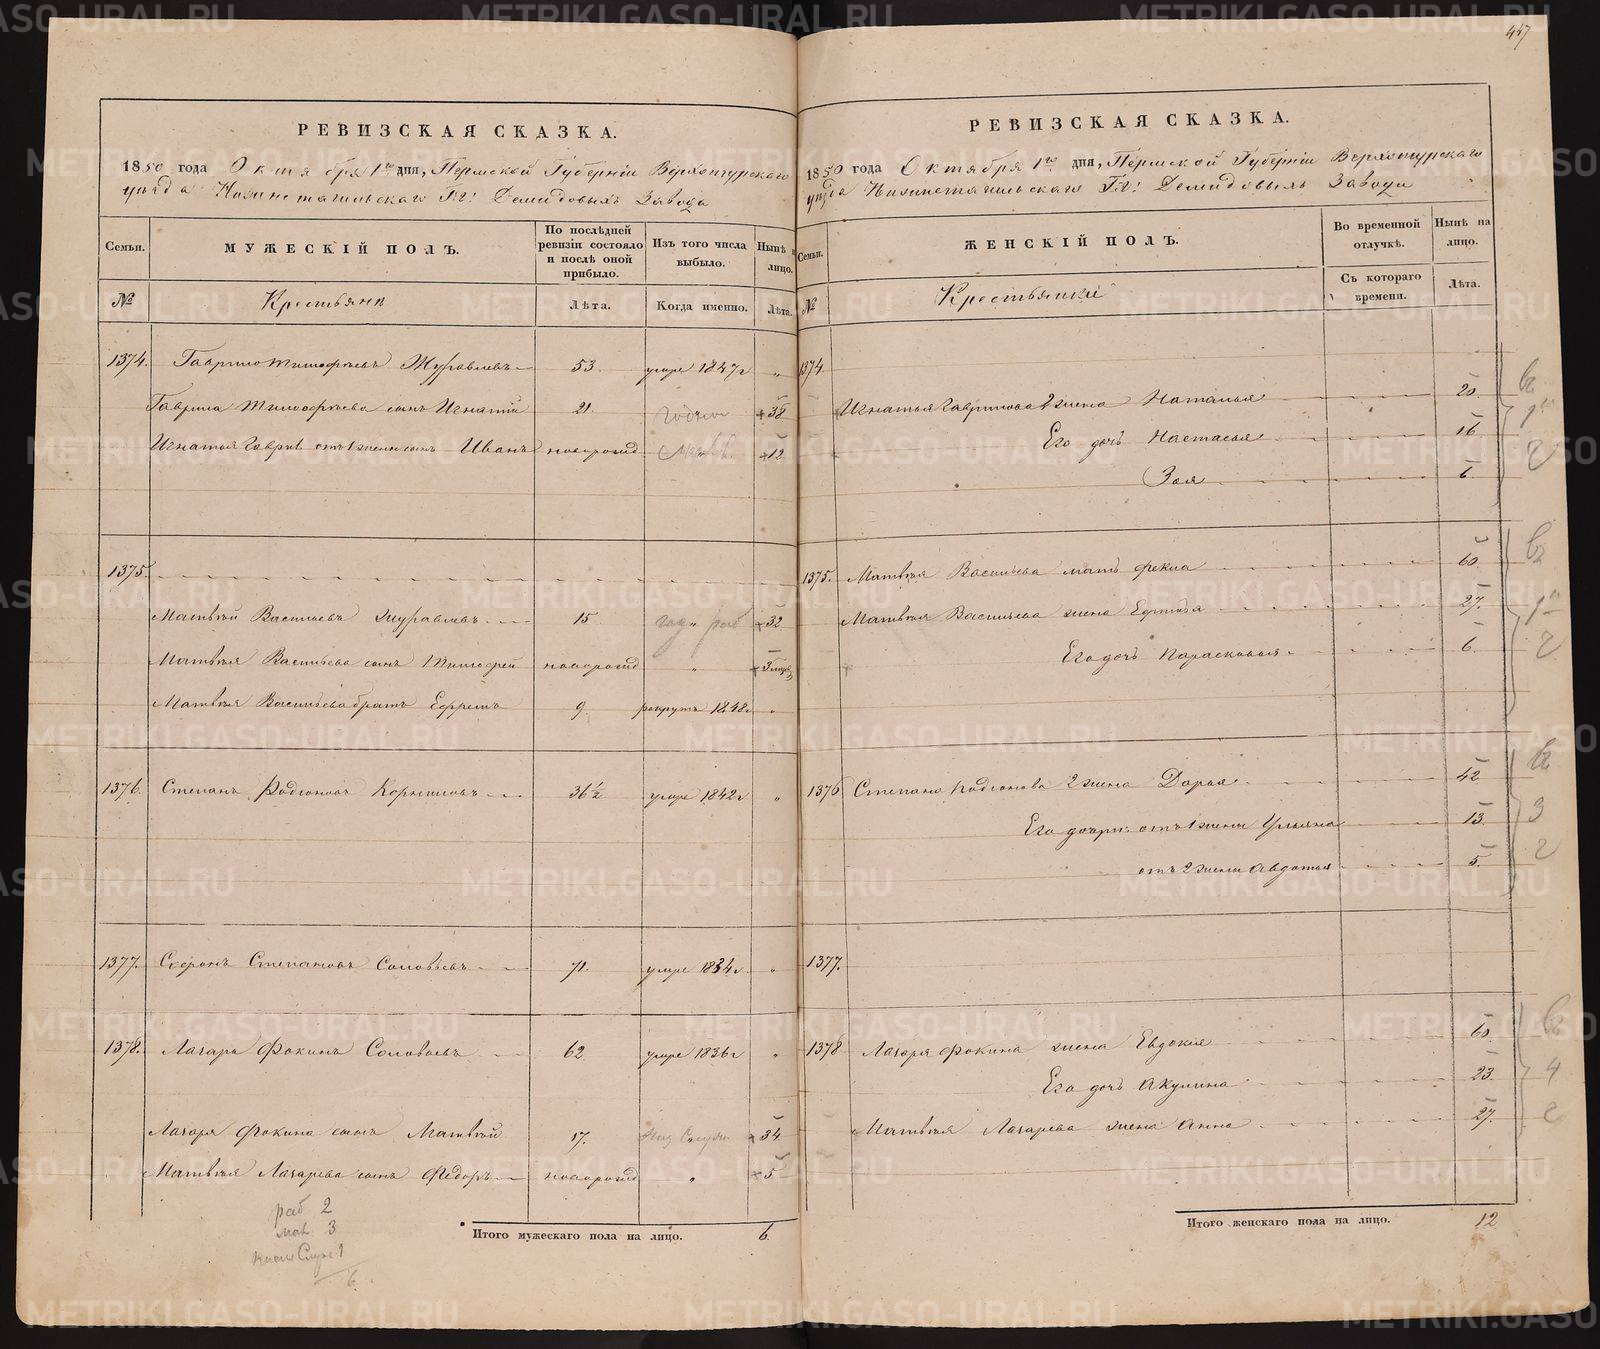 447
РЕВИЗСКАЯ СКАЗКА.
1850 года Октября 1го дня, Пермской Губернiи Верхотурскаго
уѣзда Нижнетагильскаго Гг: Демидовыхъ Завода
Семьи.
МУЖЕСКIЙ ПОЛЪ.
По послѣдней ревизiи состояло и послѣ оной прибыло.
Изъ того числа выбыло.
Нынѣ лицо.
№
Крестьяне
Лѣта.
Когда именно.
Лѣта.
1374. Гаврило Тимофѣевъ Журавлевъ 53. умре 1847г "
Гаврила Тимофѣева сынъ Игнатiй 21. 38
Игнатья Гаврил отъ 1 жены сынъ Иванъ новорожд 12
1375.
Матвѣй Васильевъ Журавлевъ 15 раб 32
Матвѣя Васильева сынъ Тимофей новорожд " 3
Матвѣя Васильева братъ Ефремъ 9. рекрутъ 1848г "
1376. Степанъ Родiоновъ Корниловъ 36½ умре 1842г "
1377. Софронъ Степановъ Соловьевъ 71. умре 1834г "
1378. Лазарь Фокинъ Соловьевъ 62. умре 1836г "
Лазаря Фокина сынъ Матвѣй 17. 34.
Матвѣя Лазарева сынъ Федоръ новорожд " 5
раб 2
мал 3
1
6.
Итого мужескаго пола на лицо. 6.
РЕВИЗСКАЯ СКАЗКА.
1850 года Октября 1го дня, Пермской Губернiи Верхотурскаго
уѣзда Нижнетагильскаго Гг: Демидовыхъ Завода
Семьи.
ЖЕНСКIЙ ПОЛЪ.
Во временной отлучкѣ.
Нынѣ на лицо.
№
Крестьянки
Съ котораго времени.
Лѣта.
1374
Игнатья Гаврилова 2 жена Наталья 20.
Его дочь Настасья 16
Зоя 6.
1375. Матвѣя Васильева мать Фекла 60.
Матвѣя Васильева жена Ефимья 27.
Его дочь Парасковья 6.
1376 Степана Родiонова 2 жена Дарья 42
Его дочри: отъ 1 жены Ульяна 13.
отъ 2 жены Авдотья 5.
1377.
1378 Лазаря Фокина жена Евдокия 60.
Его дочь Акулина 23.
Матвѣя Лазарева жена Анна 27.
Итого женскаго пола на лицо. 12
METRIKI.GASO-URAL.RU